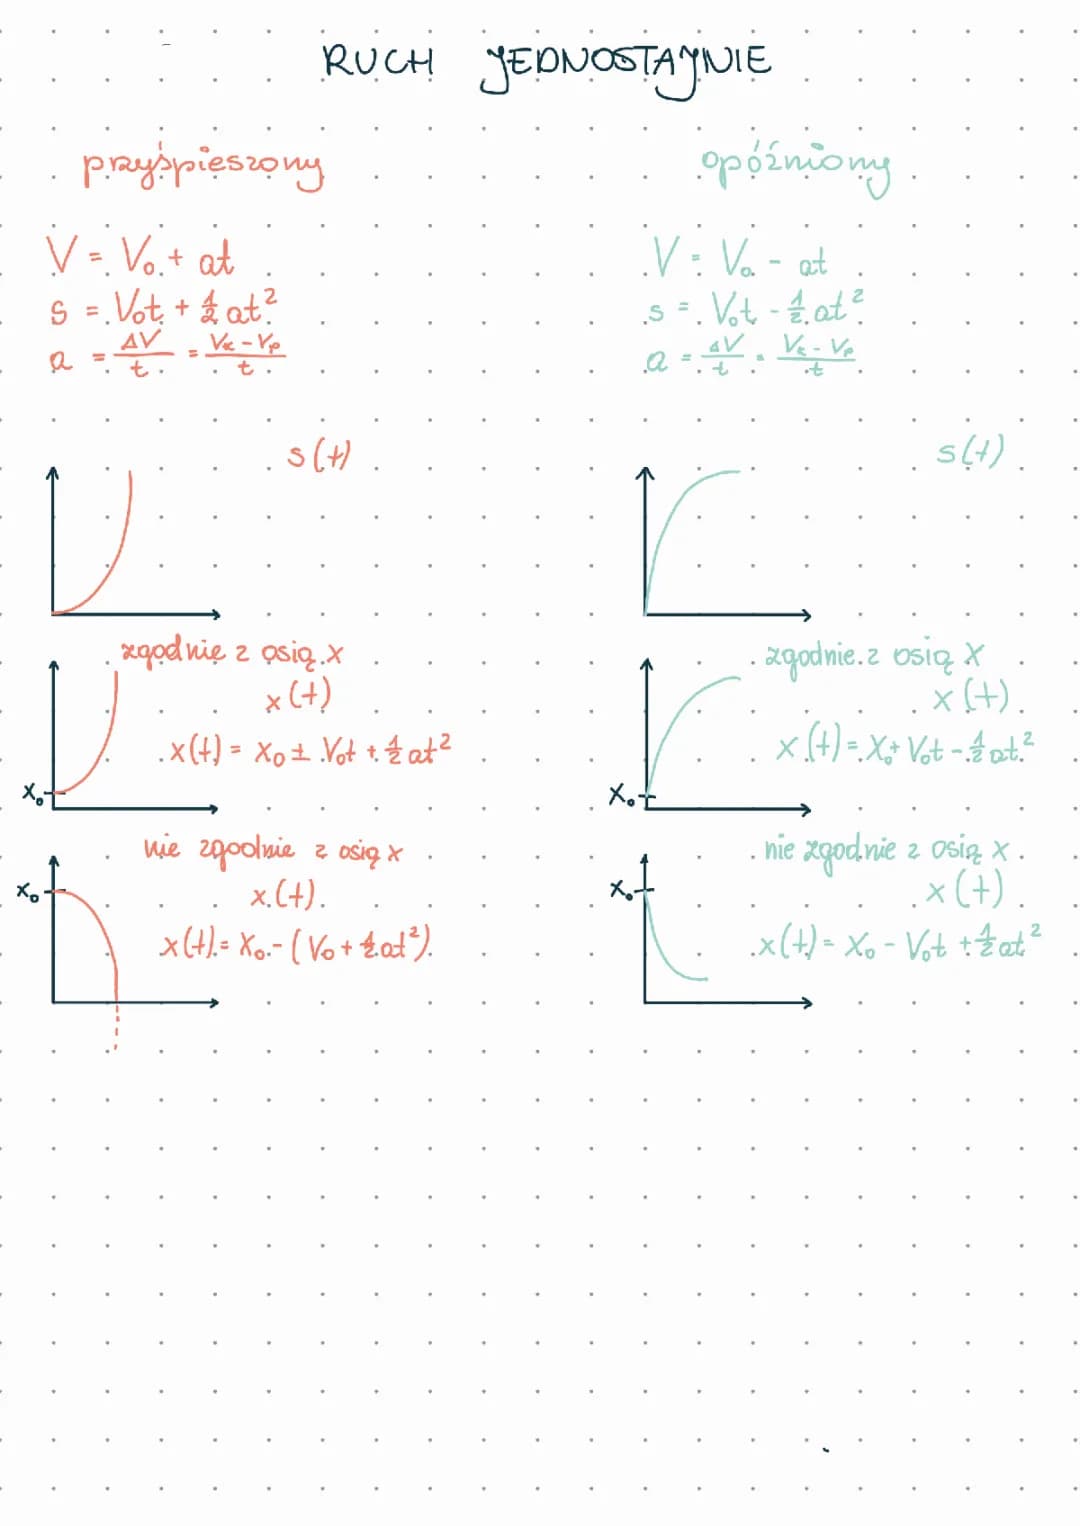 RUCH JEDNOSTAJNIE
przyśpieszony
V = V₀ + at
s = V₀t + ½ at²
a = ΔV/t = Vₖ - Vₚ/t
s(t)
zgodnie z osią x
x(t)
x(t) = x₀ ± V₀t + ½ at²
x₀
nie zgodnie z osią x
x₀
x(t)
x(t) = x₀ - (V₀ + ½ at²)
opóźniony
V = V₀ - at
s = V₀t - ½ at²
a = ΔV/t = Vₖ - Vₚ/t
s(t)
zgodnie z osią x
x(t)
x(t) = x₀ + V₀t - ½ at²
x₀
nie zgodnie z osią x
x₀
x(t)
x(t) = x₀ - V₀t + ½ at²